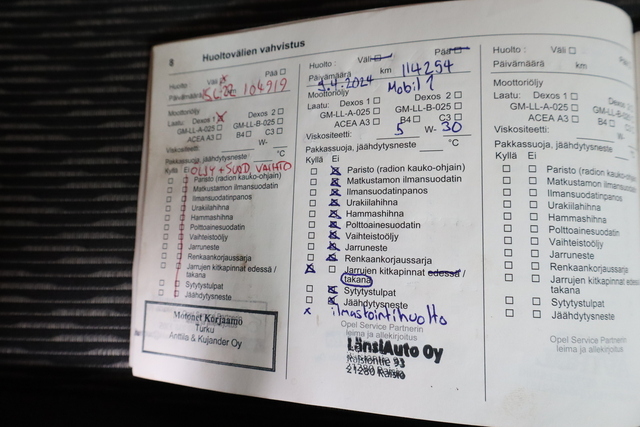 8
Huoltovälien vahvistus
Huolto: Väli Pää
Päivämäärä km 104919
Moottoriöljy
Laatu: Dexos 1 X Dexos 2
GM-LL-A-025 GM-LL-B-025
ACEA A3 B4 C3
Viskositeetti: W-
Pakkassuoja, jäähdytysneste °C
Kyllä Ei ÖLJY + SUOD VAIHTO
Paristo (radion kauko-ohjain)
Matkustamon ilmansuodatin
Ilmansuodatinpanos
Urakiilahihna
Hammashihna
Polttoainesuodatin
Vaihteistoöljy
Jarruneste
Renkaankorjaussarja
Jarrujen kitkapinnat edessä /
takana
Sytytystulpat
Jäähdytysneste
Motonet Korjaamo
Turku
Anttila & Kujander Oy
Huolto: Väli Pää
Päivämäärä 9.4.2024 km 114254
Moottoriöljy Mobil 1
Laatu: Dexos 1 Dexos 2
GM-LL-A-025 GM-LL-B-025
ACEA A3 B4 C3
Viskositeetti: 5 W- 30
Pakkassuoja, jäähdytysneste °C
Kyllä Ei
X Paristo (radion kauko-ohjain)
X Matkustamon ilmansuodatin
X Ilmansuodatinpanos
X Urakiilahihna
X Hammashihna
X Polttoainesuodatin
X Vaihteistoöljy
X Jarruneste
X Renkaankorjaussarja
X Jarrujen kitkapinnat edessä /
takana
X Sytytystulpat
X Jäähdytysneste
x ilmastointihuolto
Opel Service Partnerin
leima ja allekirjoitus
LänsiAuto Oy
Raisiontie 93
21280 Raisio
Huolto: Väli
Päivämäärä km
Moottoriöljy
Laatu: Dexos 1
GM-LL-A-025
ACEA A3
Viskositeetti:
Pakkassuoja, jäähdytysneste
Kyllä Ei
Paristo (radion kauko-ohjain)
Matkustamon ilmansuodatin
Ilmansuodatinpanos
Urakiilahihna
Hammashihna
Polttoainesuodatin
Vaihteistoöljy
Jarruneste
Renkaankorjaussarja
Jarrujen kitkapinnat
takana
Sytytystulpat
Jäähdytysneste
Opel Service Partnerin
leima ja allekirjoitus